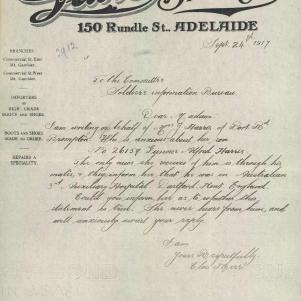 150 Rundle St., ADELAIDE
BRANCHES
Commercial St. East
Mt. Gambier.
Commercial St. West
Mt. Gambier.
IMPORTERS
OF
HIGH GRADE
BOOTS AND SHOES
BOOTS AND SHOES
MADE TO ORDER
REPAIRS A
SPECIALTY.
2912
Sept. 24th 1917
To the Committee
Soldiers information Bureau
Dear Madam
I am writing on behalf of Mrs Harris of Port Rd
Brompton, Who is anxious about her son
No 26139 Alfred Harris.
The only news she receives of him is through his
mates, & they inform her that he was in Australian
3rd Auxiliary Hospital. Dartford. Kent. England.
Could you inform her as to whether this
statement is true. She never hears from him, and
will anxiously await your reply.
I am
Yours Respectfully